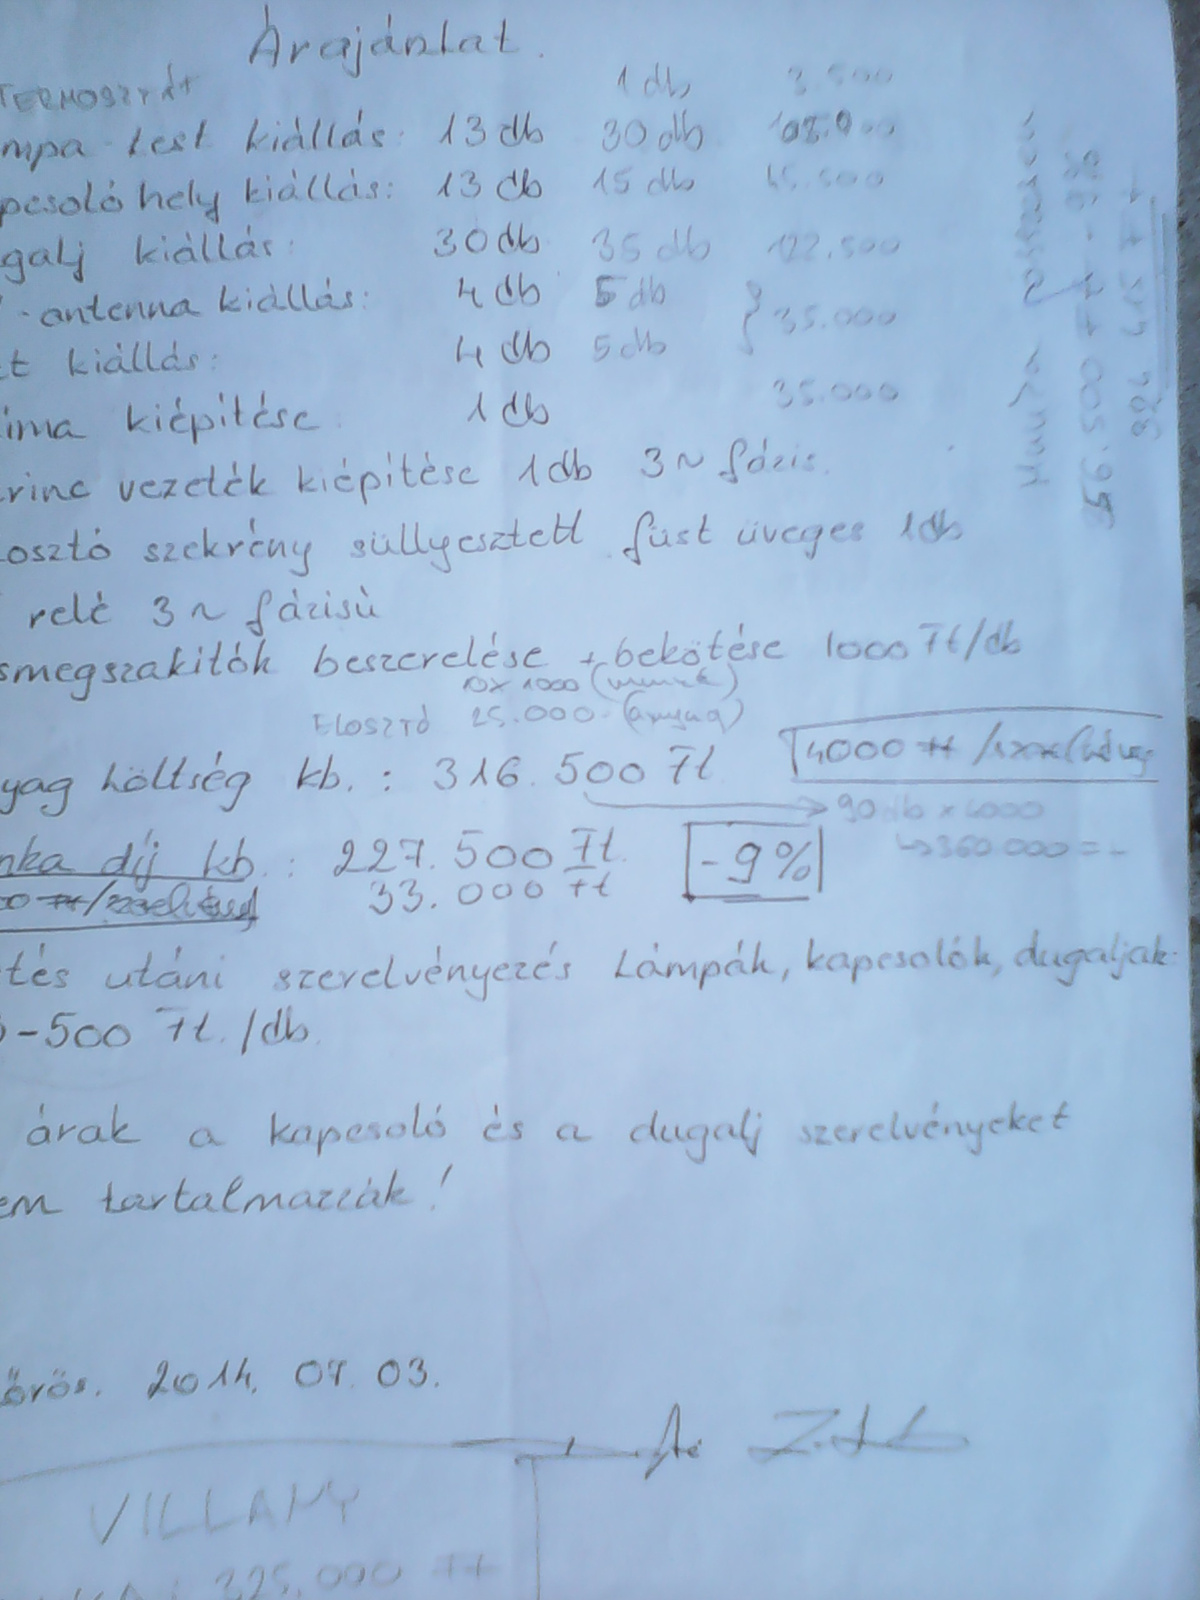 Árajánlat.
TERMOSZTÁT 1 db 3.500
mpa test kiállás: 13 db 30 db
pcsoló hely kiállás: 13 db 15 db 45.500
galj kiállás: 30 db 35 db 122.500
antenna kiállás: 4 db 5 db
35.000
t kiállás: 4 db 5 db
íma kiépítése 1 db 35.000
rinc vezeték kiépítése 1 db 3 ~ fázis.
osztó szekrény süllyesztett füst üveges 1 db
relé 3 ~ fázisú
smegszakítók beszerelése + bekötése 1000 Ft/db
10 x 1000 (munka)
Elosztó 25.000 (anyag)
4000 Ft /
yag költség kb. : 316.500 Ft
90 db x 4000
nka díj kb. : 227.500 Ft. -9%
↳ 360 000 = -
33.000 Ft
tés utáni szerelvényezés Lámpák, kapcsolók, dugaljak:
-500 Ft. /db.
árak a kapcsoló és a dugalj szerelvényeket
em tartalmazzák!
örös. 2014. 07. 03.
VILLANY
225.000 Ft